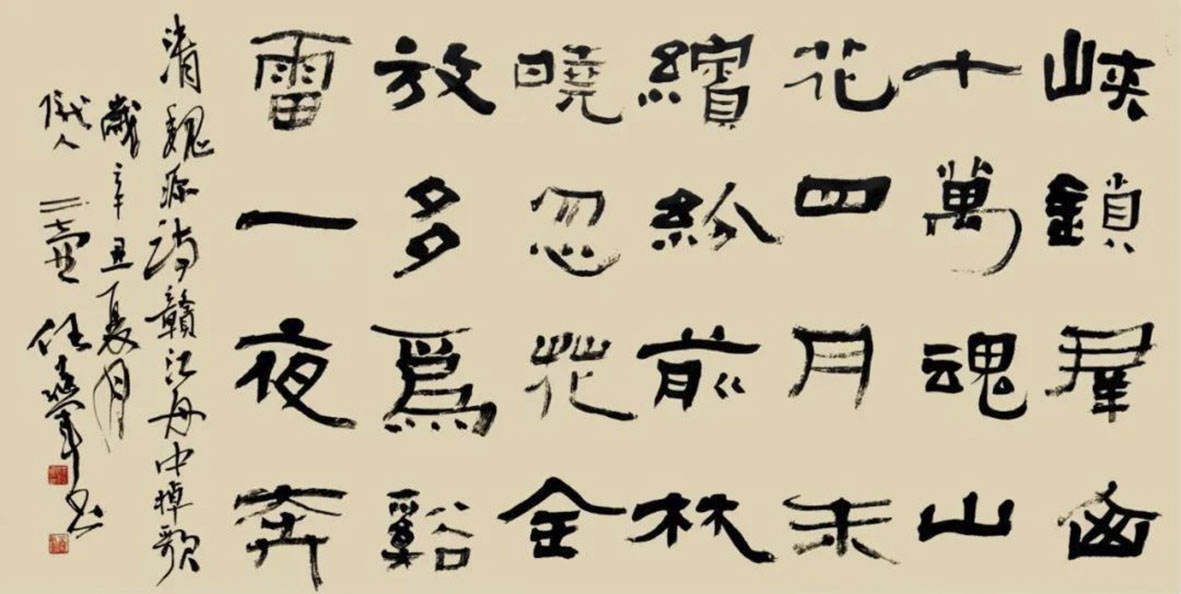 峽鎖羣
十萬魂山
花四月未
繽紛前林
曉忽花全
放多爲谿
雷一夜奔
清魏源詩贛江舟中棹歌
歲辛丑夏月
人 任 書